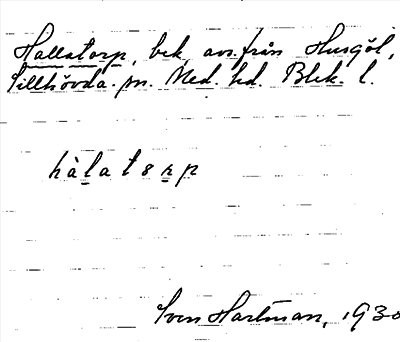 Hallatorp, bek. avs. från Husgöl,
Tillhövda sn. Med. hd. Blek. l.
hàlatorp
Sven Hartman, 1930